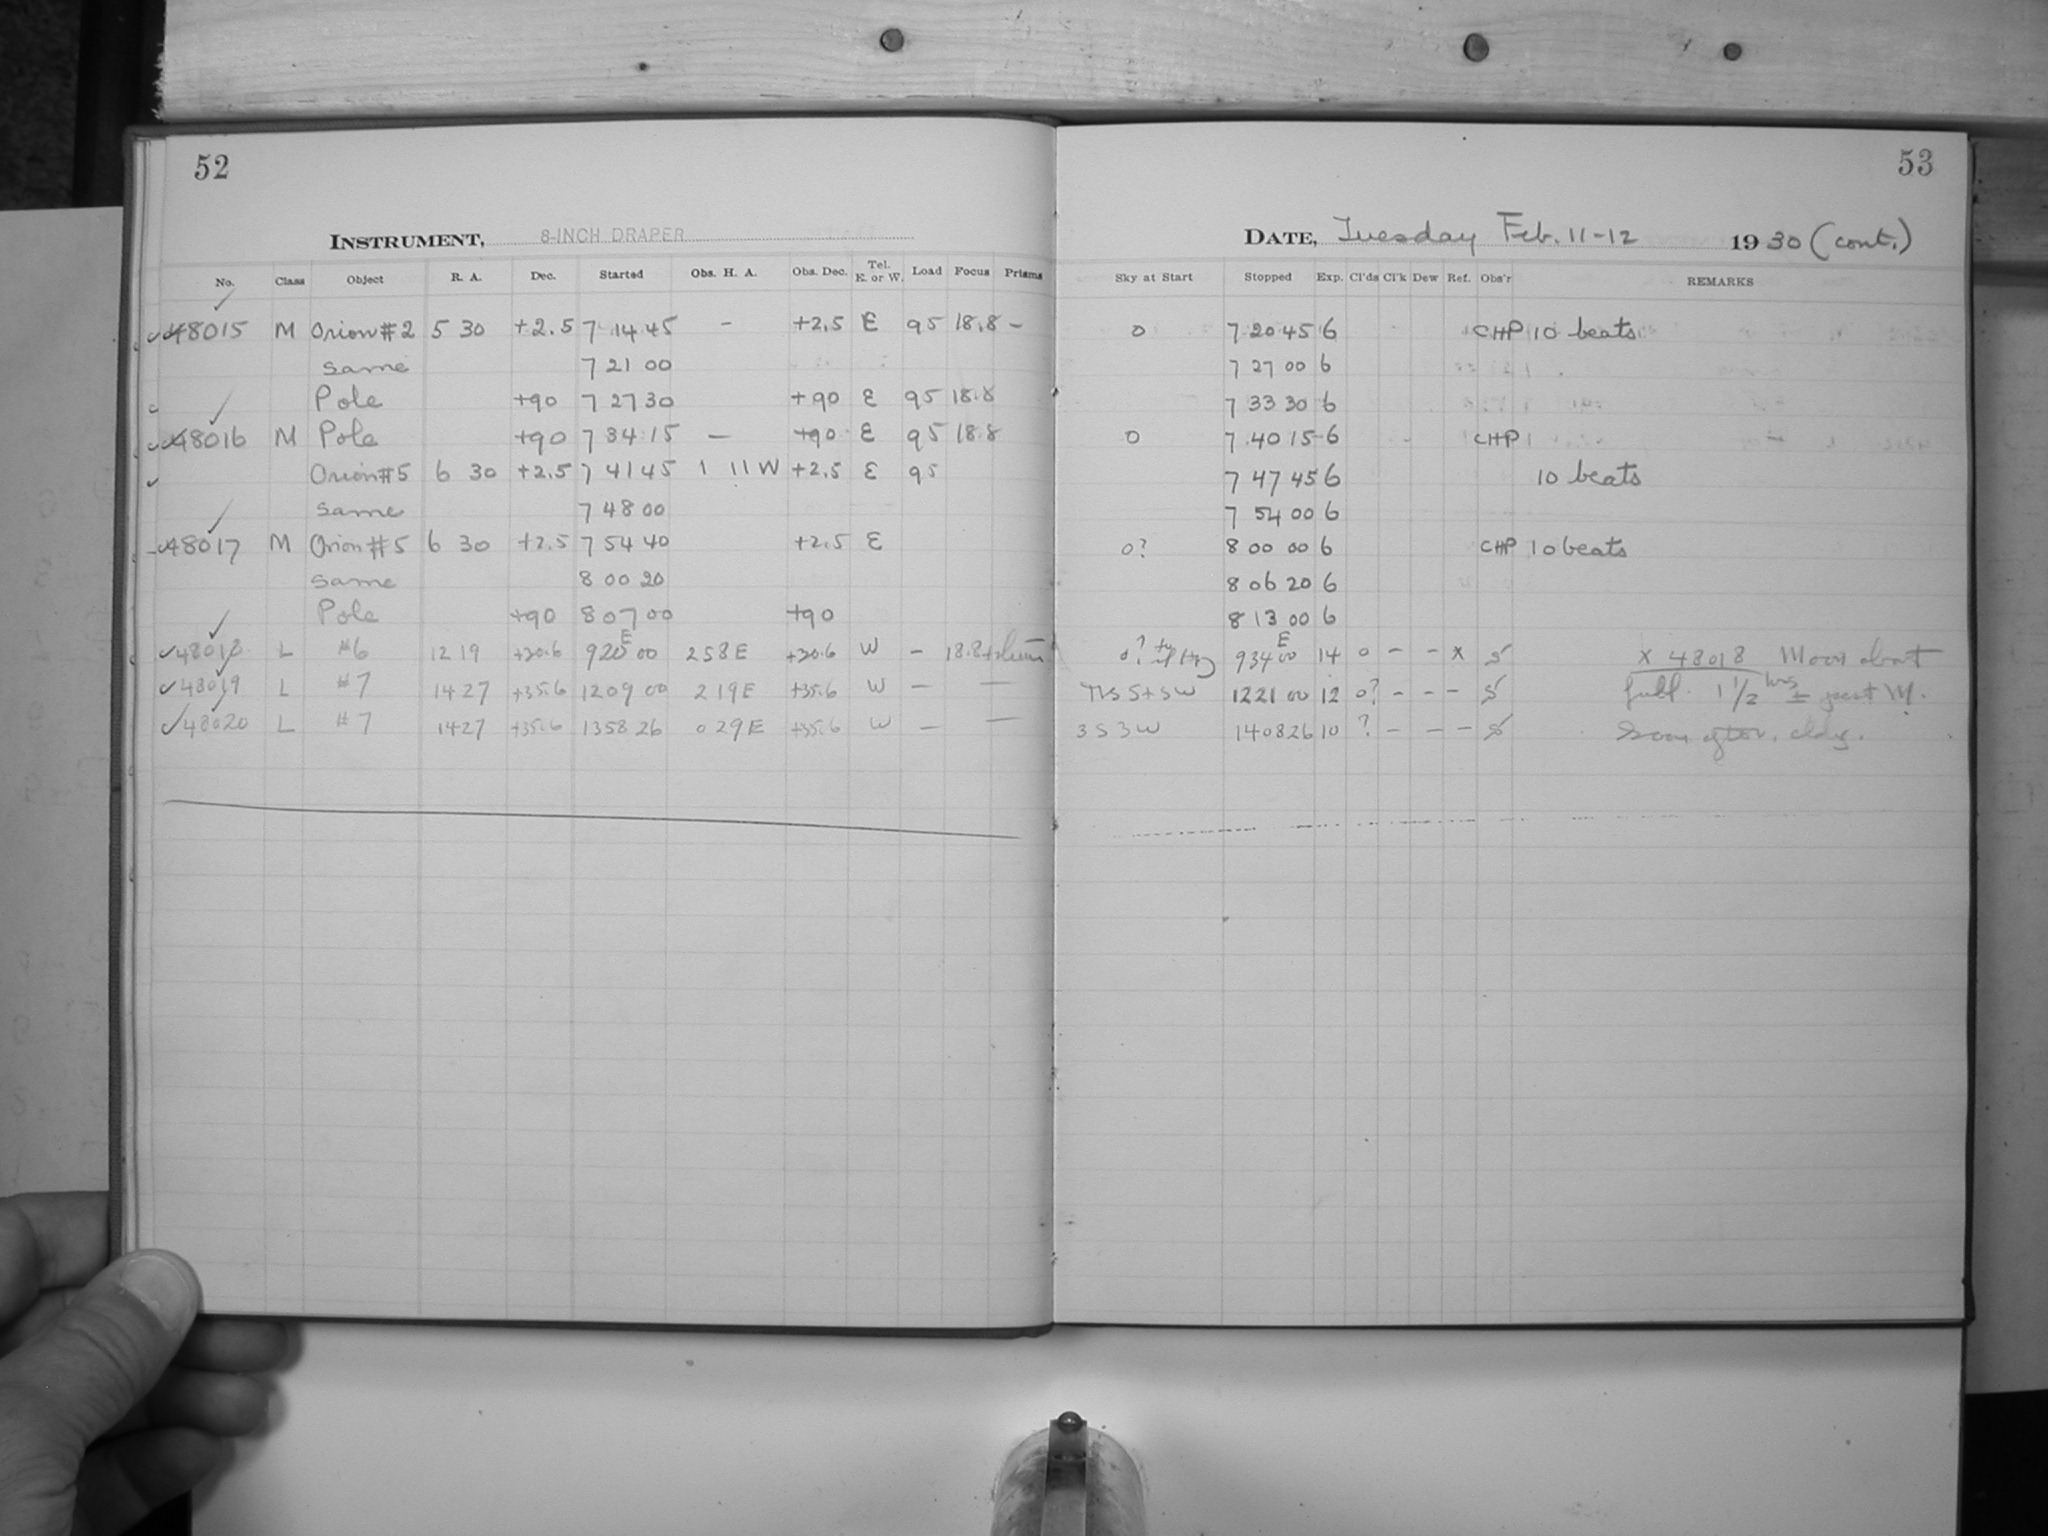 52
INSTRUMENT, 8-INCH DRAPER
No. Class Object R. A. Dec. Started Obs. H. A. Obs. Dec. Tel. E. or W. Load Focus Prisms
48015 M Orion #2 5 30 +2.5 7 14 45 - +2.5 E 95 18.8 -
same 7 21 00
Pole +90 7 27 30 +90 E 95 18.8
48016 M Pole +90 7 34 15 - +90 E 95 18.8
Orion #5 6 30 +2.5 7 41 45 1 11 W +2.5 E 95
same 7 48 00
48017 M Orion #5 6 30 +2.5 7 54 40 +2.5 E
same 8 00 20
Pole +90 8 07 00 +90
48018 L #6 12 19 +30.6 9 20 E 00 2 58 E +30.6 W - 18.8
48019 L #7 14 27 +35.6 12 09 00 2 19 E +35.6 W - -
48020 L #7 14 27 +35.6 13 58 26 0 29 E +35.6 W - -
53
DATE, Tuesday Feb. 11-12 1930 (cont.)
Sky at Start Stopped Exp. Cl'ds Cl'k Dew Ref. Obs'r REMARKS
0 7 20 45 6 CHP 10 beats
7 27 00 6
7 33 30 6
0 7 40 15 6 CHP
7 47 45 6 10 beats
7 54 00 6
0? 8 00 00 6 CHP 10 beats
8 06 20 6
8 13 00 6
0? 9 34 E 00 14 0 - - x S x 48018 Moon about
S+SW 12 21 00 12 0? - - - S full. 1 1/2 hrs ± past M.
3 S 3 W 14 08 26 10 ? - - - S Soon after, cldy.